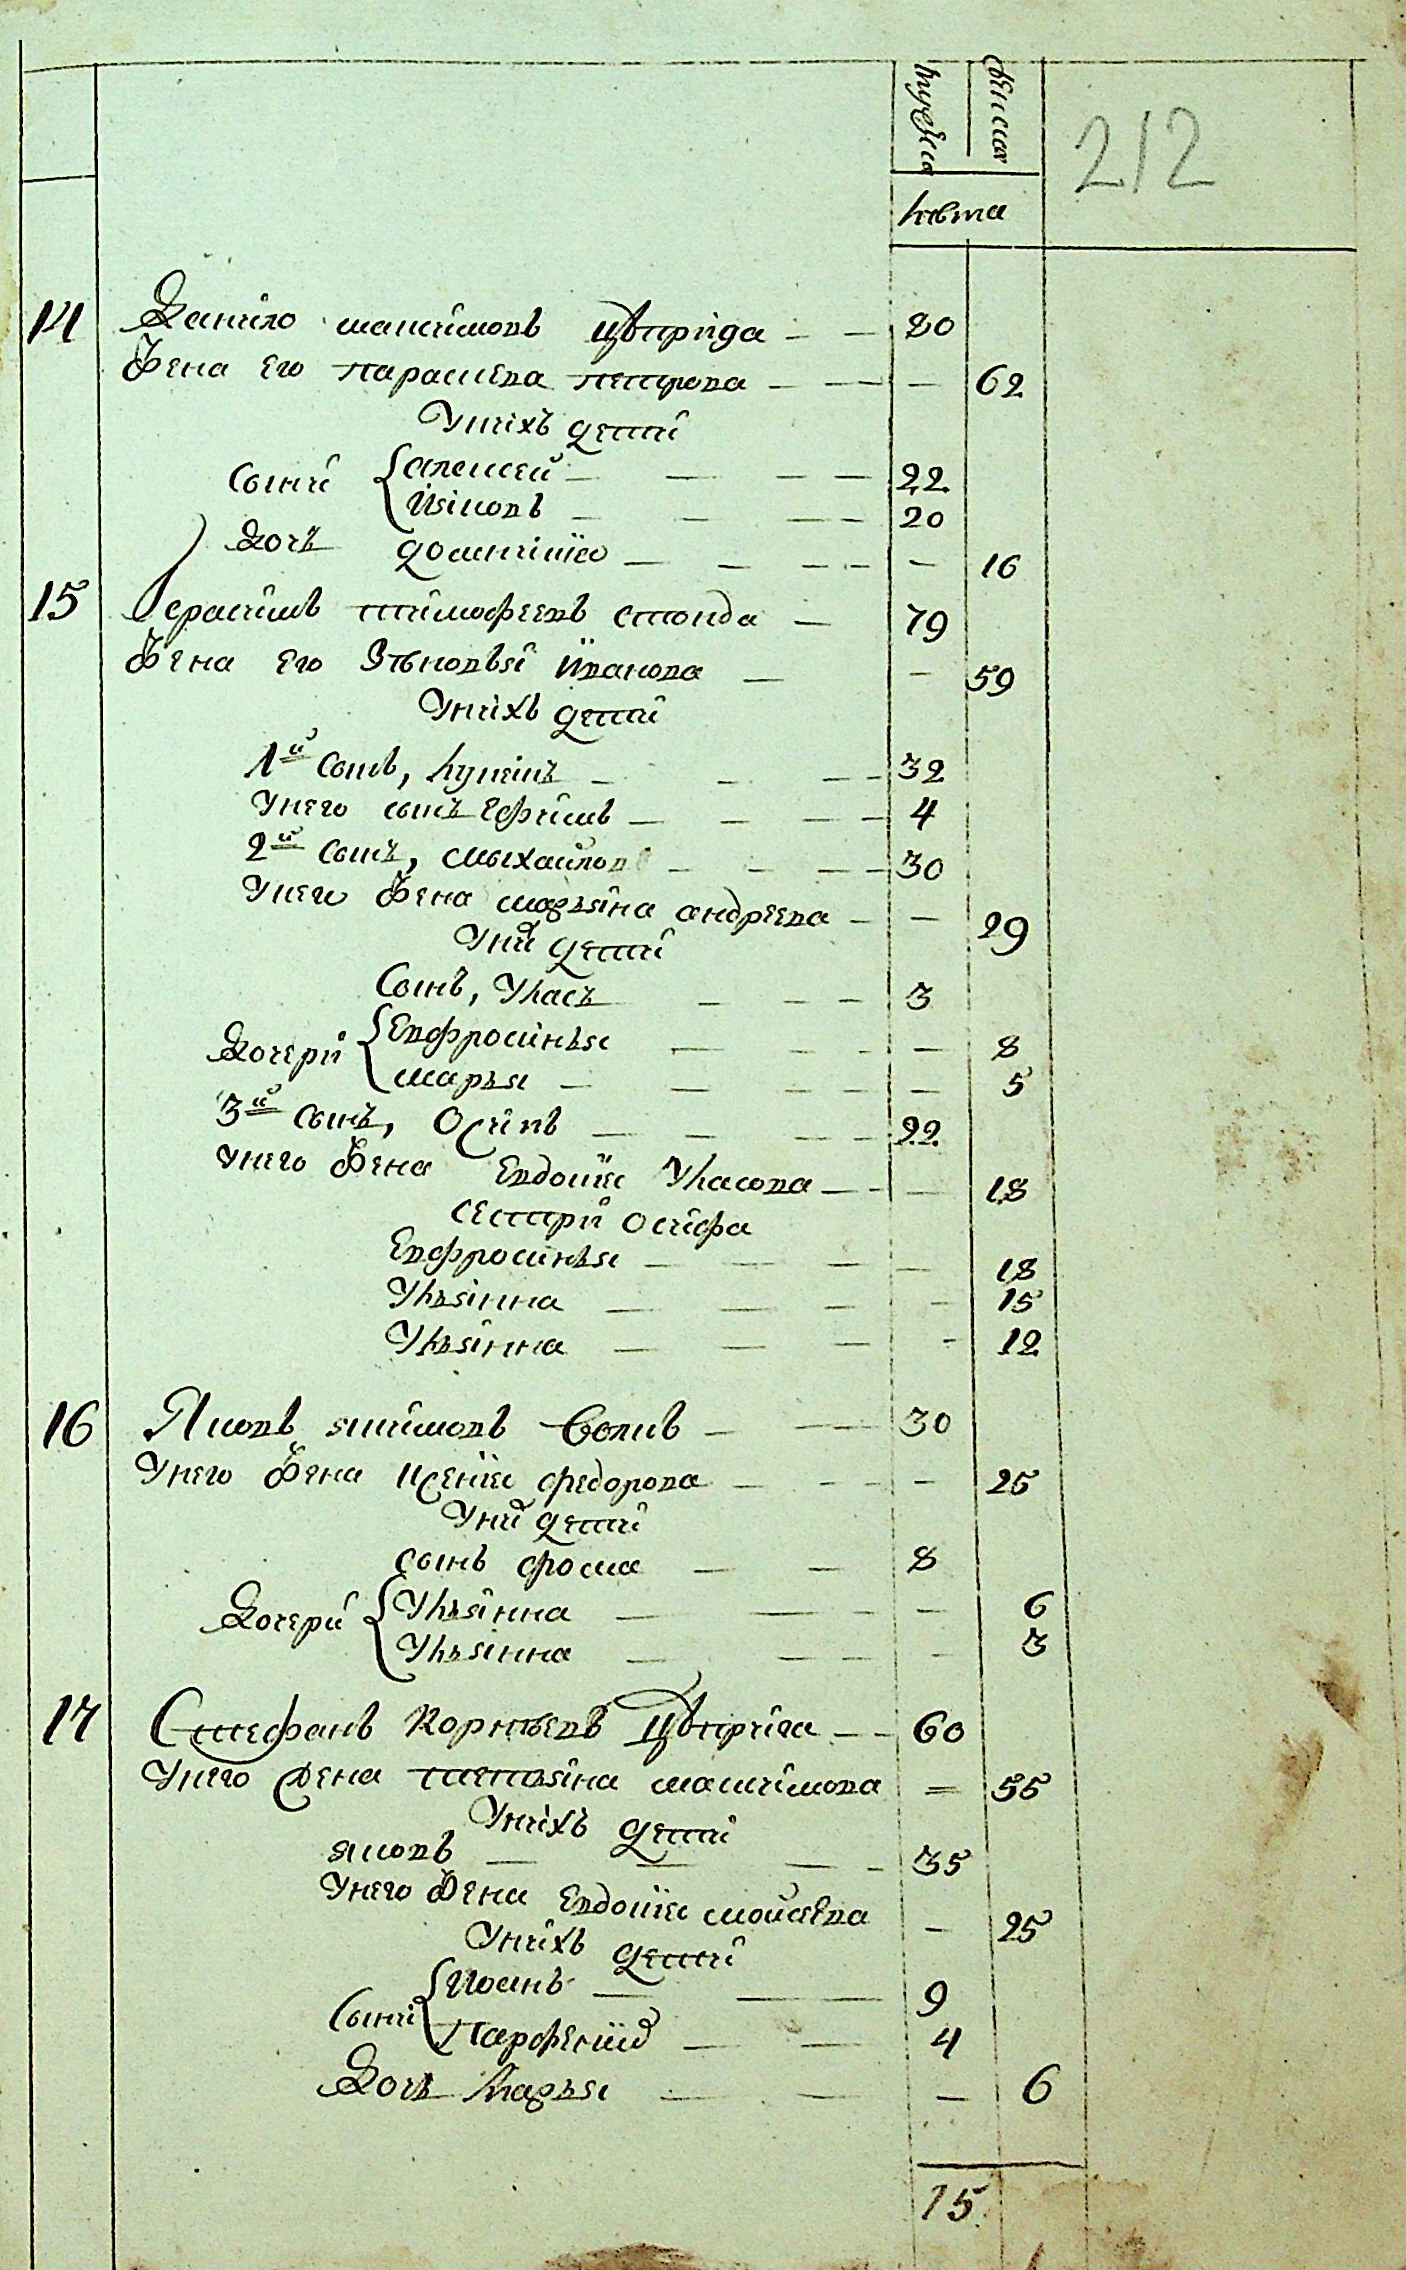 мужеска женска
лѣта
212
14 Данило максимовъ цвѣприда — — 80
Жена его параскева петрова — — — 62
Унихъ дети
Сыни { алексей — — — 22
Яковъ — — — 20
Дочъ домникия — — — — 16
15 Герасимъ тимофеевъ стонда — 79
Жена его Зѣновья иванова — — 59
Унихъ дети
1й Сынъ, Купинъ — — — 32
Унего сынъ Ефимъ — — — 4
2й Сынъ, михайловъ — — — 30
Унего Жена марьяна андреева — — 29
Уних дети
Сынъ, Уласъ — — — 3
Дочери { Евфросинья — — — — 8
марья — — — — 5
3й Сынъ, Осипъ — — — 22
Унего Жена Евдокия Уласова — — 18
сестри осифа
Евфросинья — — — — 18
Ульянна — — — — 15
Ульянна — — — — 12
16 Яковъ якимовъ — — 30
Унего Жена ксения федорова — — — 25
Уних дети
сынъ фома — — 8
Дочери { Ульянна — — — — 6
Ульянна — — — — 3
17 Стефанъ Корнѣевъ Цвѣприга — — 60
Унего Жена татьяна максимова = 55
Унихъ дети
яковъ — — — 35
Унего Жена Евдокия мойсеева — 25
Унихъ дети
Сыни { Иоанъ — — 9
Парфений — — 4
Дочъ Марья — — — 6
15